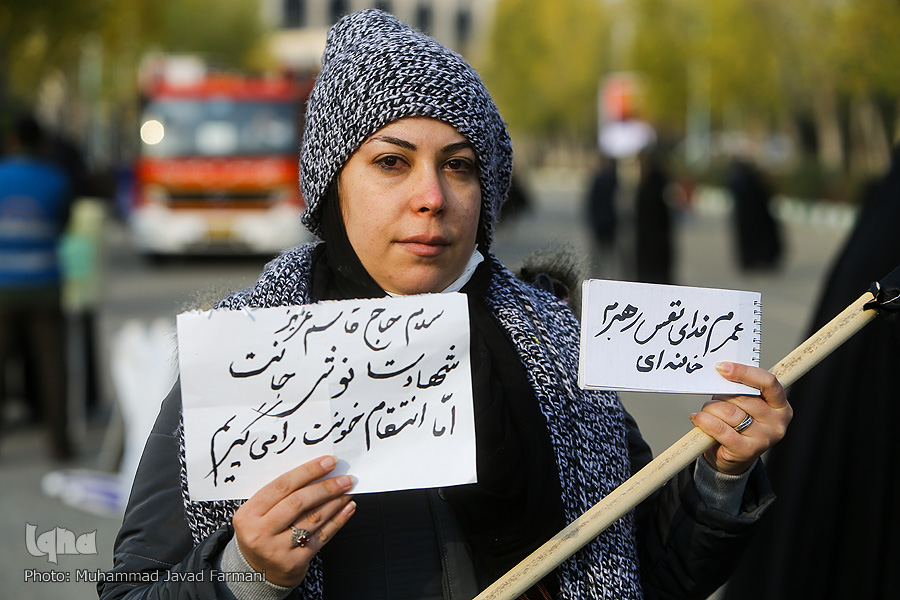 سلام حاج قاسم عزیز
شهادتت نوش جانت
امّا انتقام خونت را می گیریم
عمرم فدای نفس رهبرم
خامنه ای
iqna
Photo: Muhammad Javad Farmani